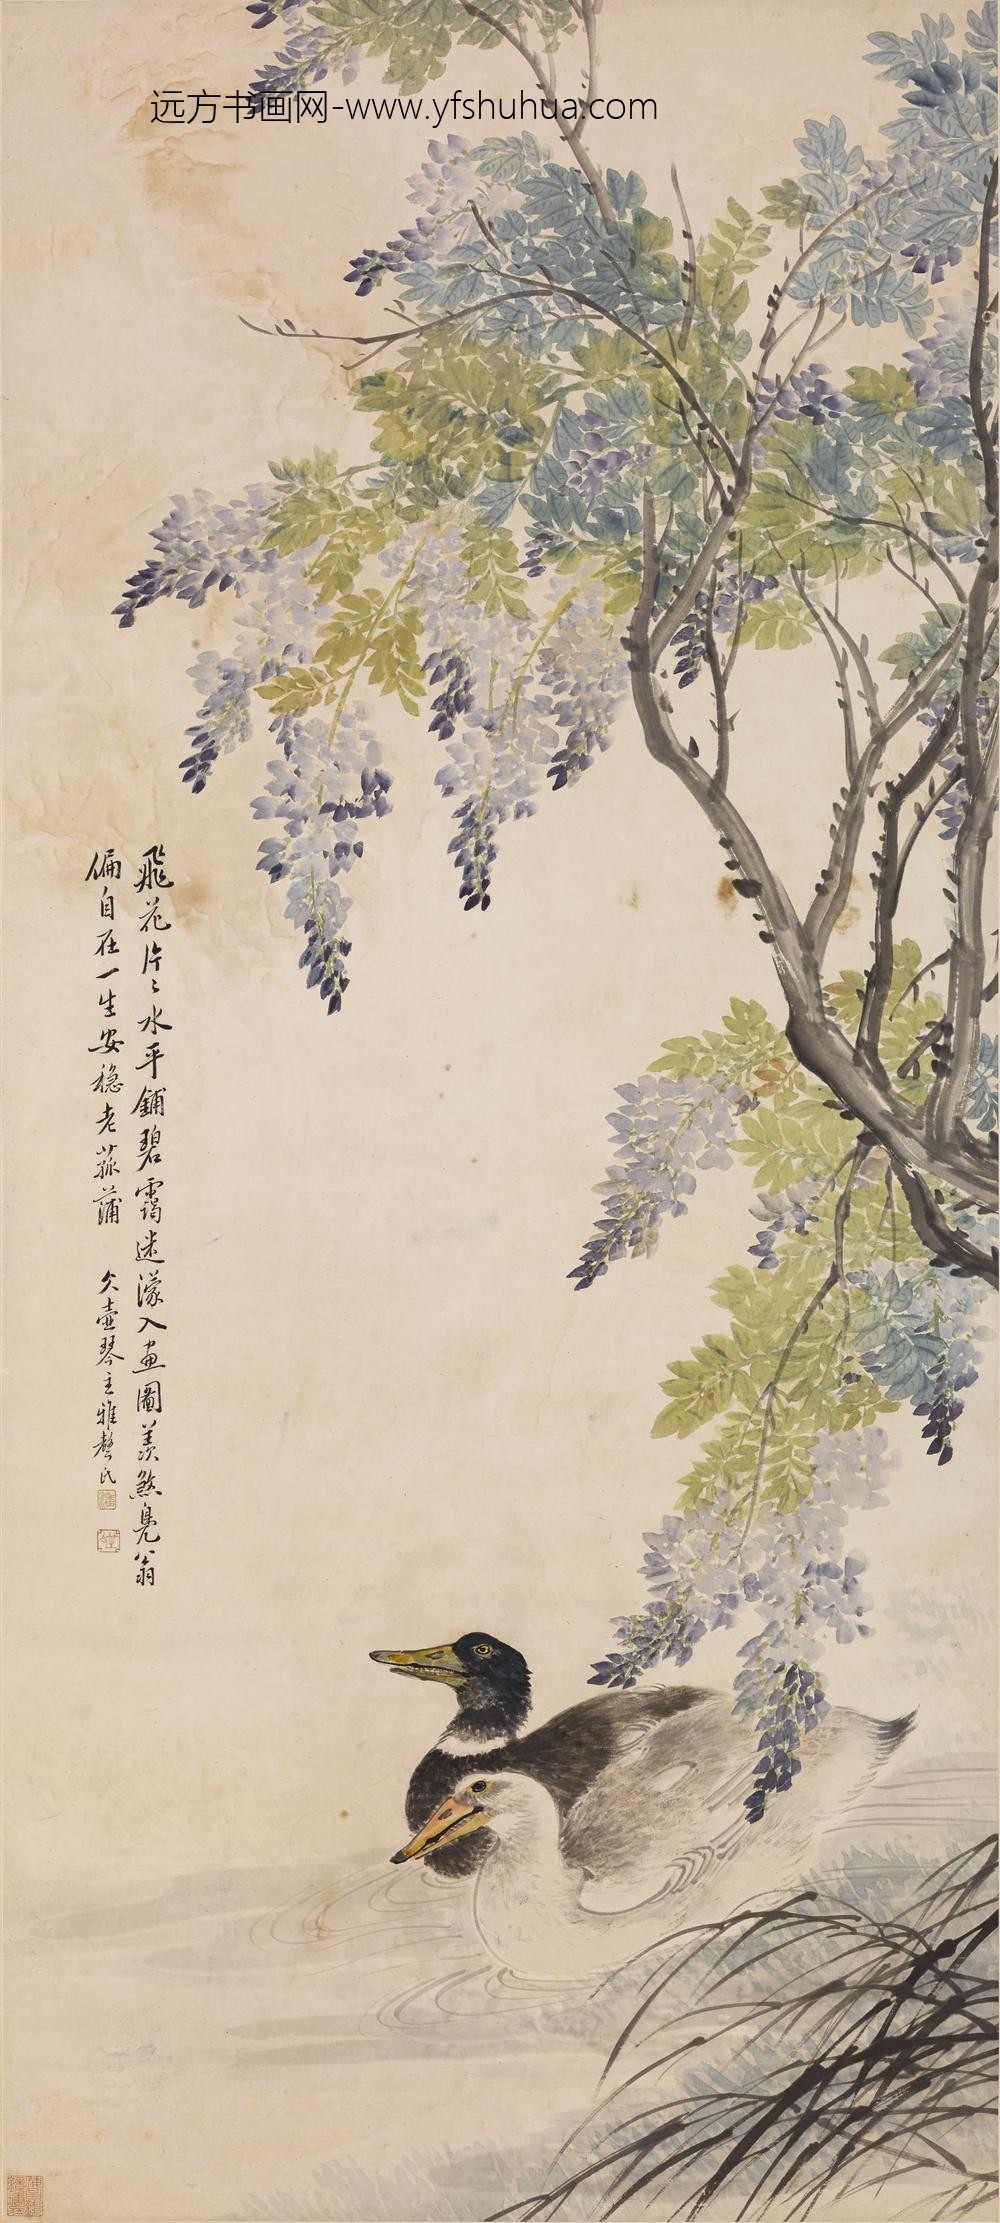 远方书画网-www.yfshuhua.com
飛花片〻水平鋪碧靄迷濛入畫圖羨煞鳧翁
偏自在一生安穩老菰蒲 久壺琴主雅聲氏